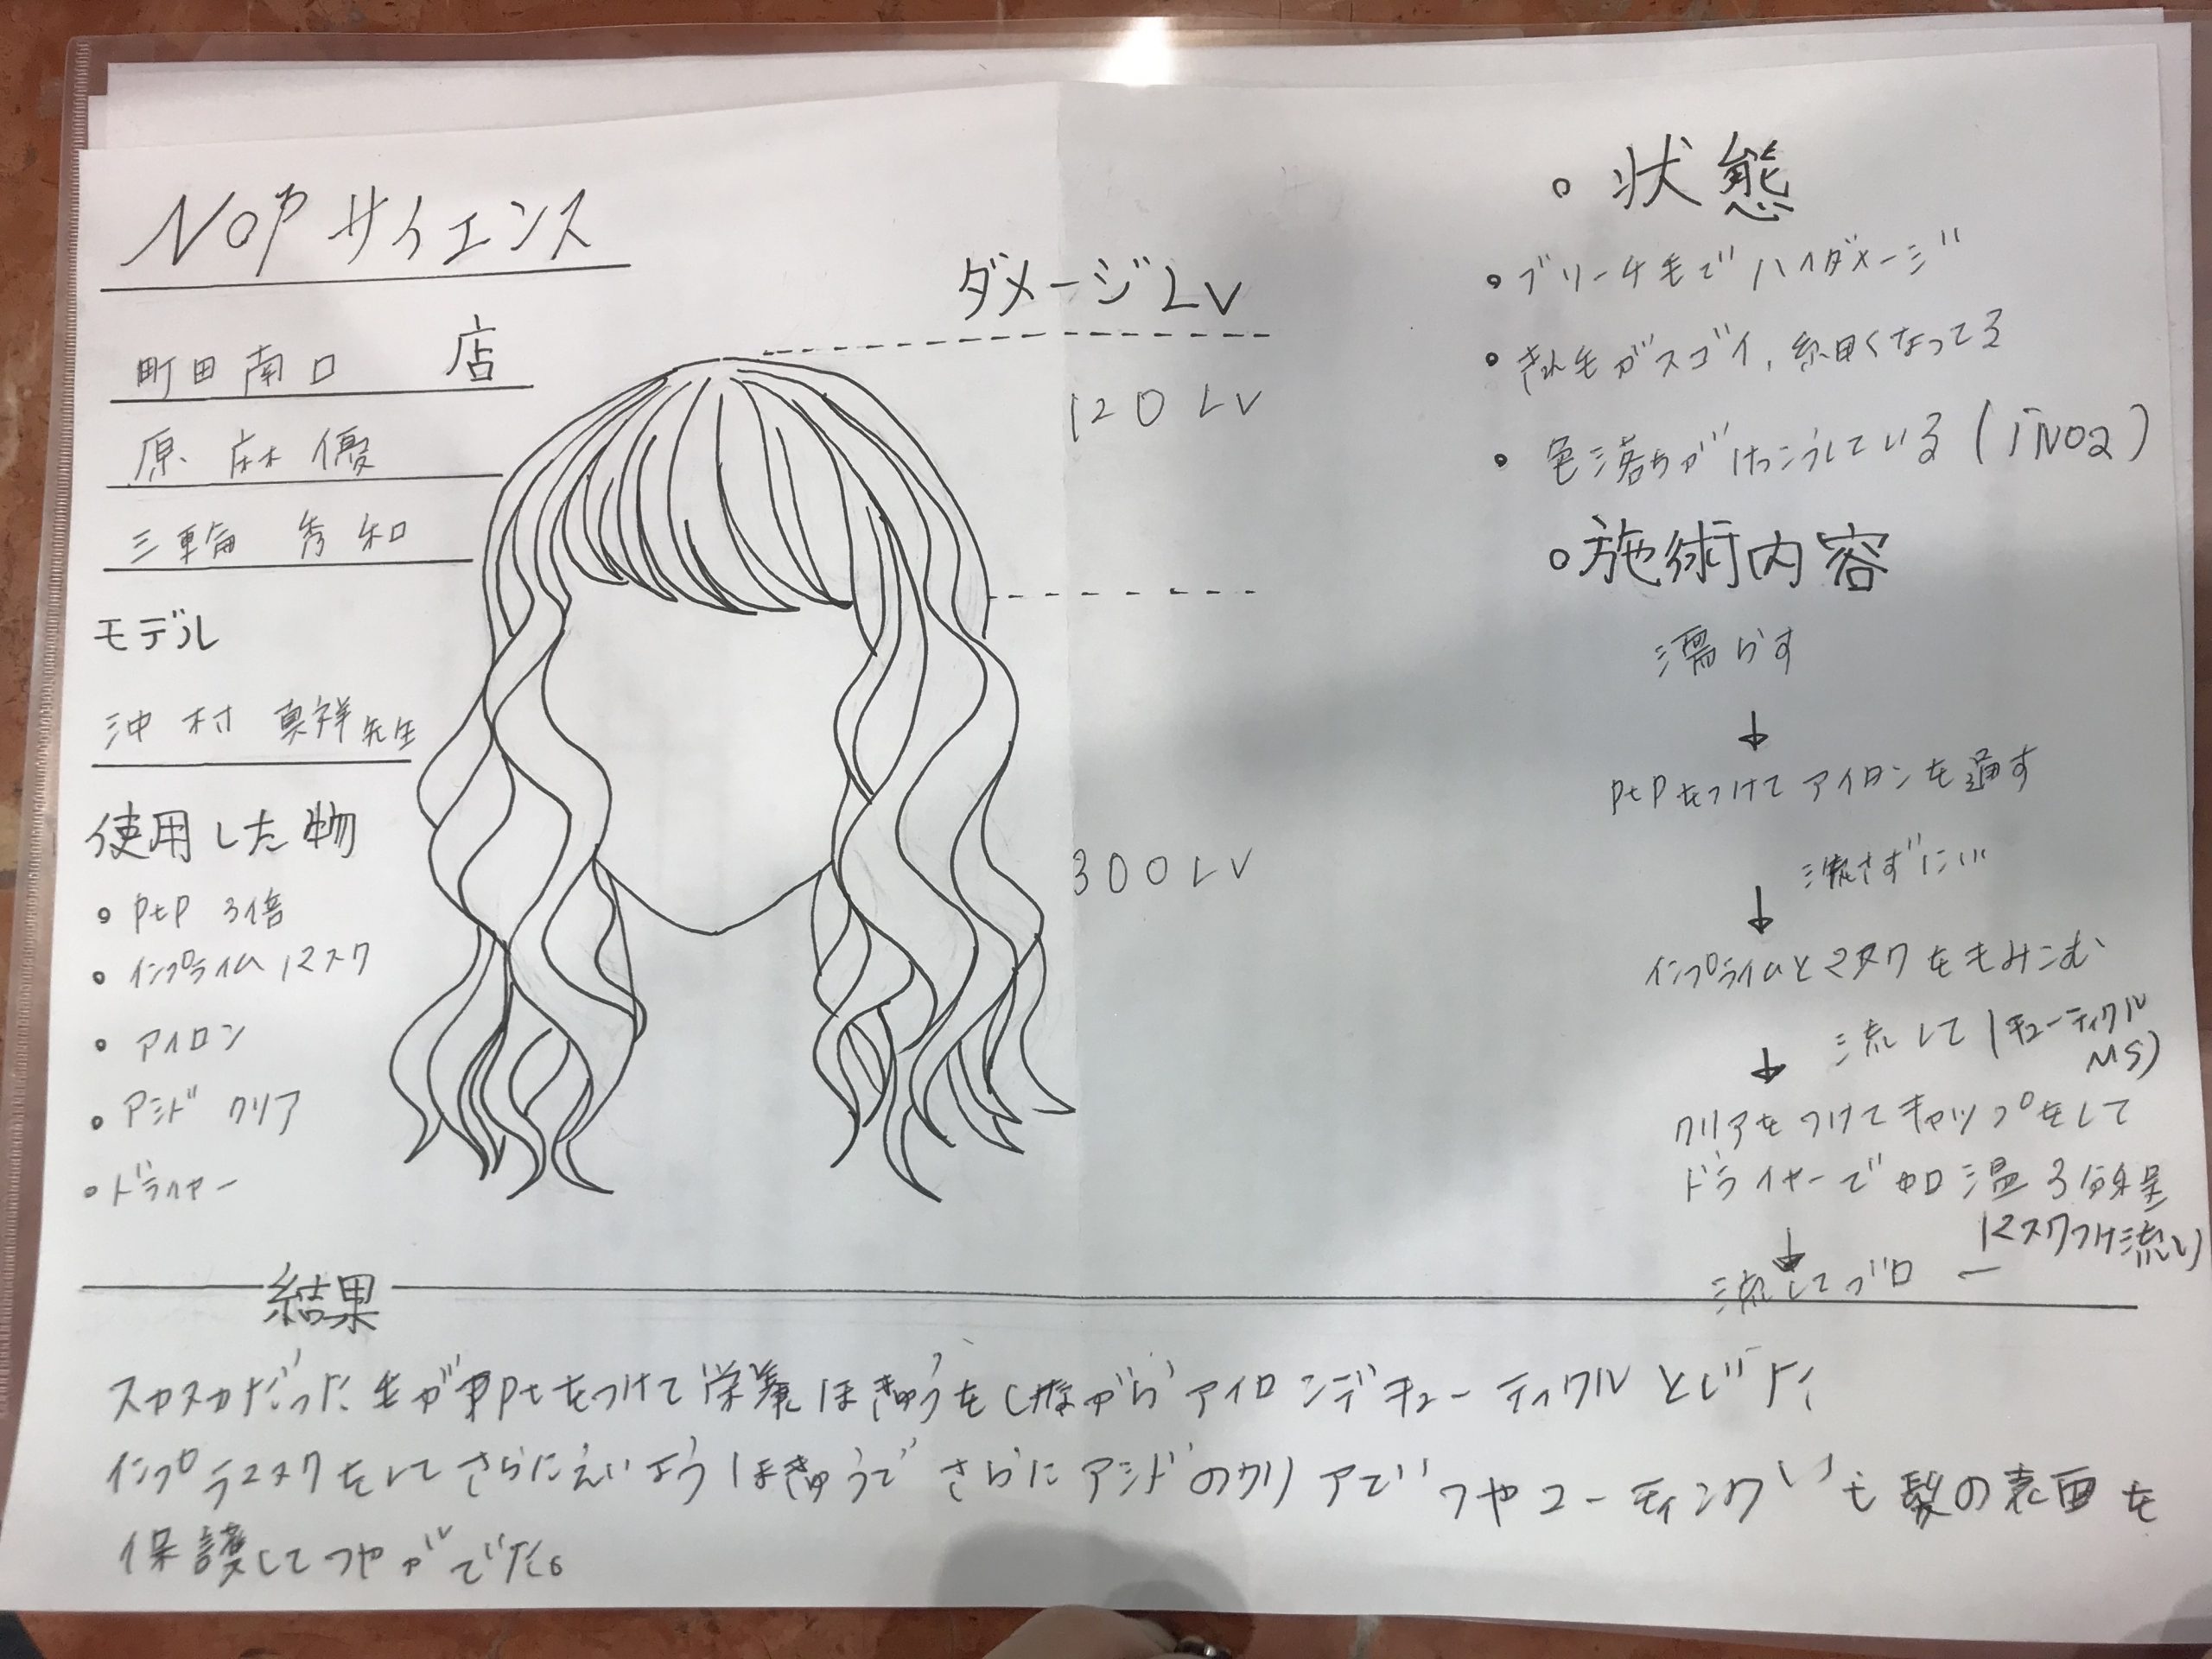 NOPサイエンス
町田南口 店
原 麻優
三輪 秀和
モデル
沖村 真祥先生
使用した物
• PtP 3倍
• インプライム マスク
• アイロン
• アシド クリア
• ドライヤー
ダメージLv
120 LV
300 LV
○ 状態
• ブリーチ毛でハイダメージ
• きれ毛がスゴイ、細くなってる
• 色落ちがけっこうしている(
○ 施術内容
濡らす
↓
PtPをつけてアイロンを通す
↓ 流さずに…
インプライムとマスクをもみこむ
↓ 流して (キューティクル
MS)
クリアをつけてキャップをして
ドライヤーで加温3分程
↓ マスクつけ流し)
流してブロー
結果
スカスカだった毛がPPtをつけて栄養ほきゅうをしながらアイロンデキューティクルとじた
インプラマスクをしてさらにえいようほきゅうでさらにアシドのクリアでつやコーティング も髪の表面を
保護してつやがでた。